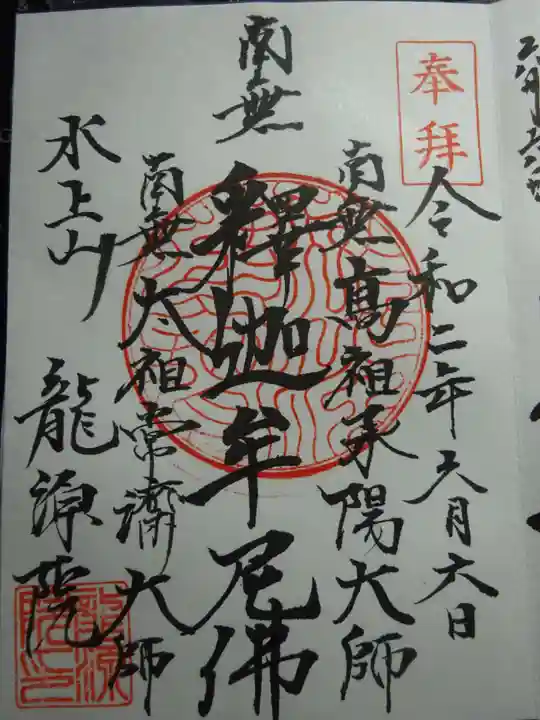 奉拝
令和二年六月六日
南無高祖承陽大師
南無釋迦牟尼佛
南無太祖常濟大師
水上山 龍源院
龍源院印